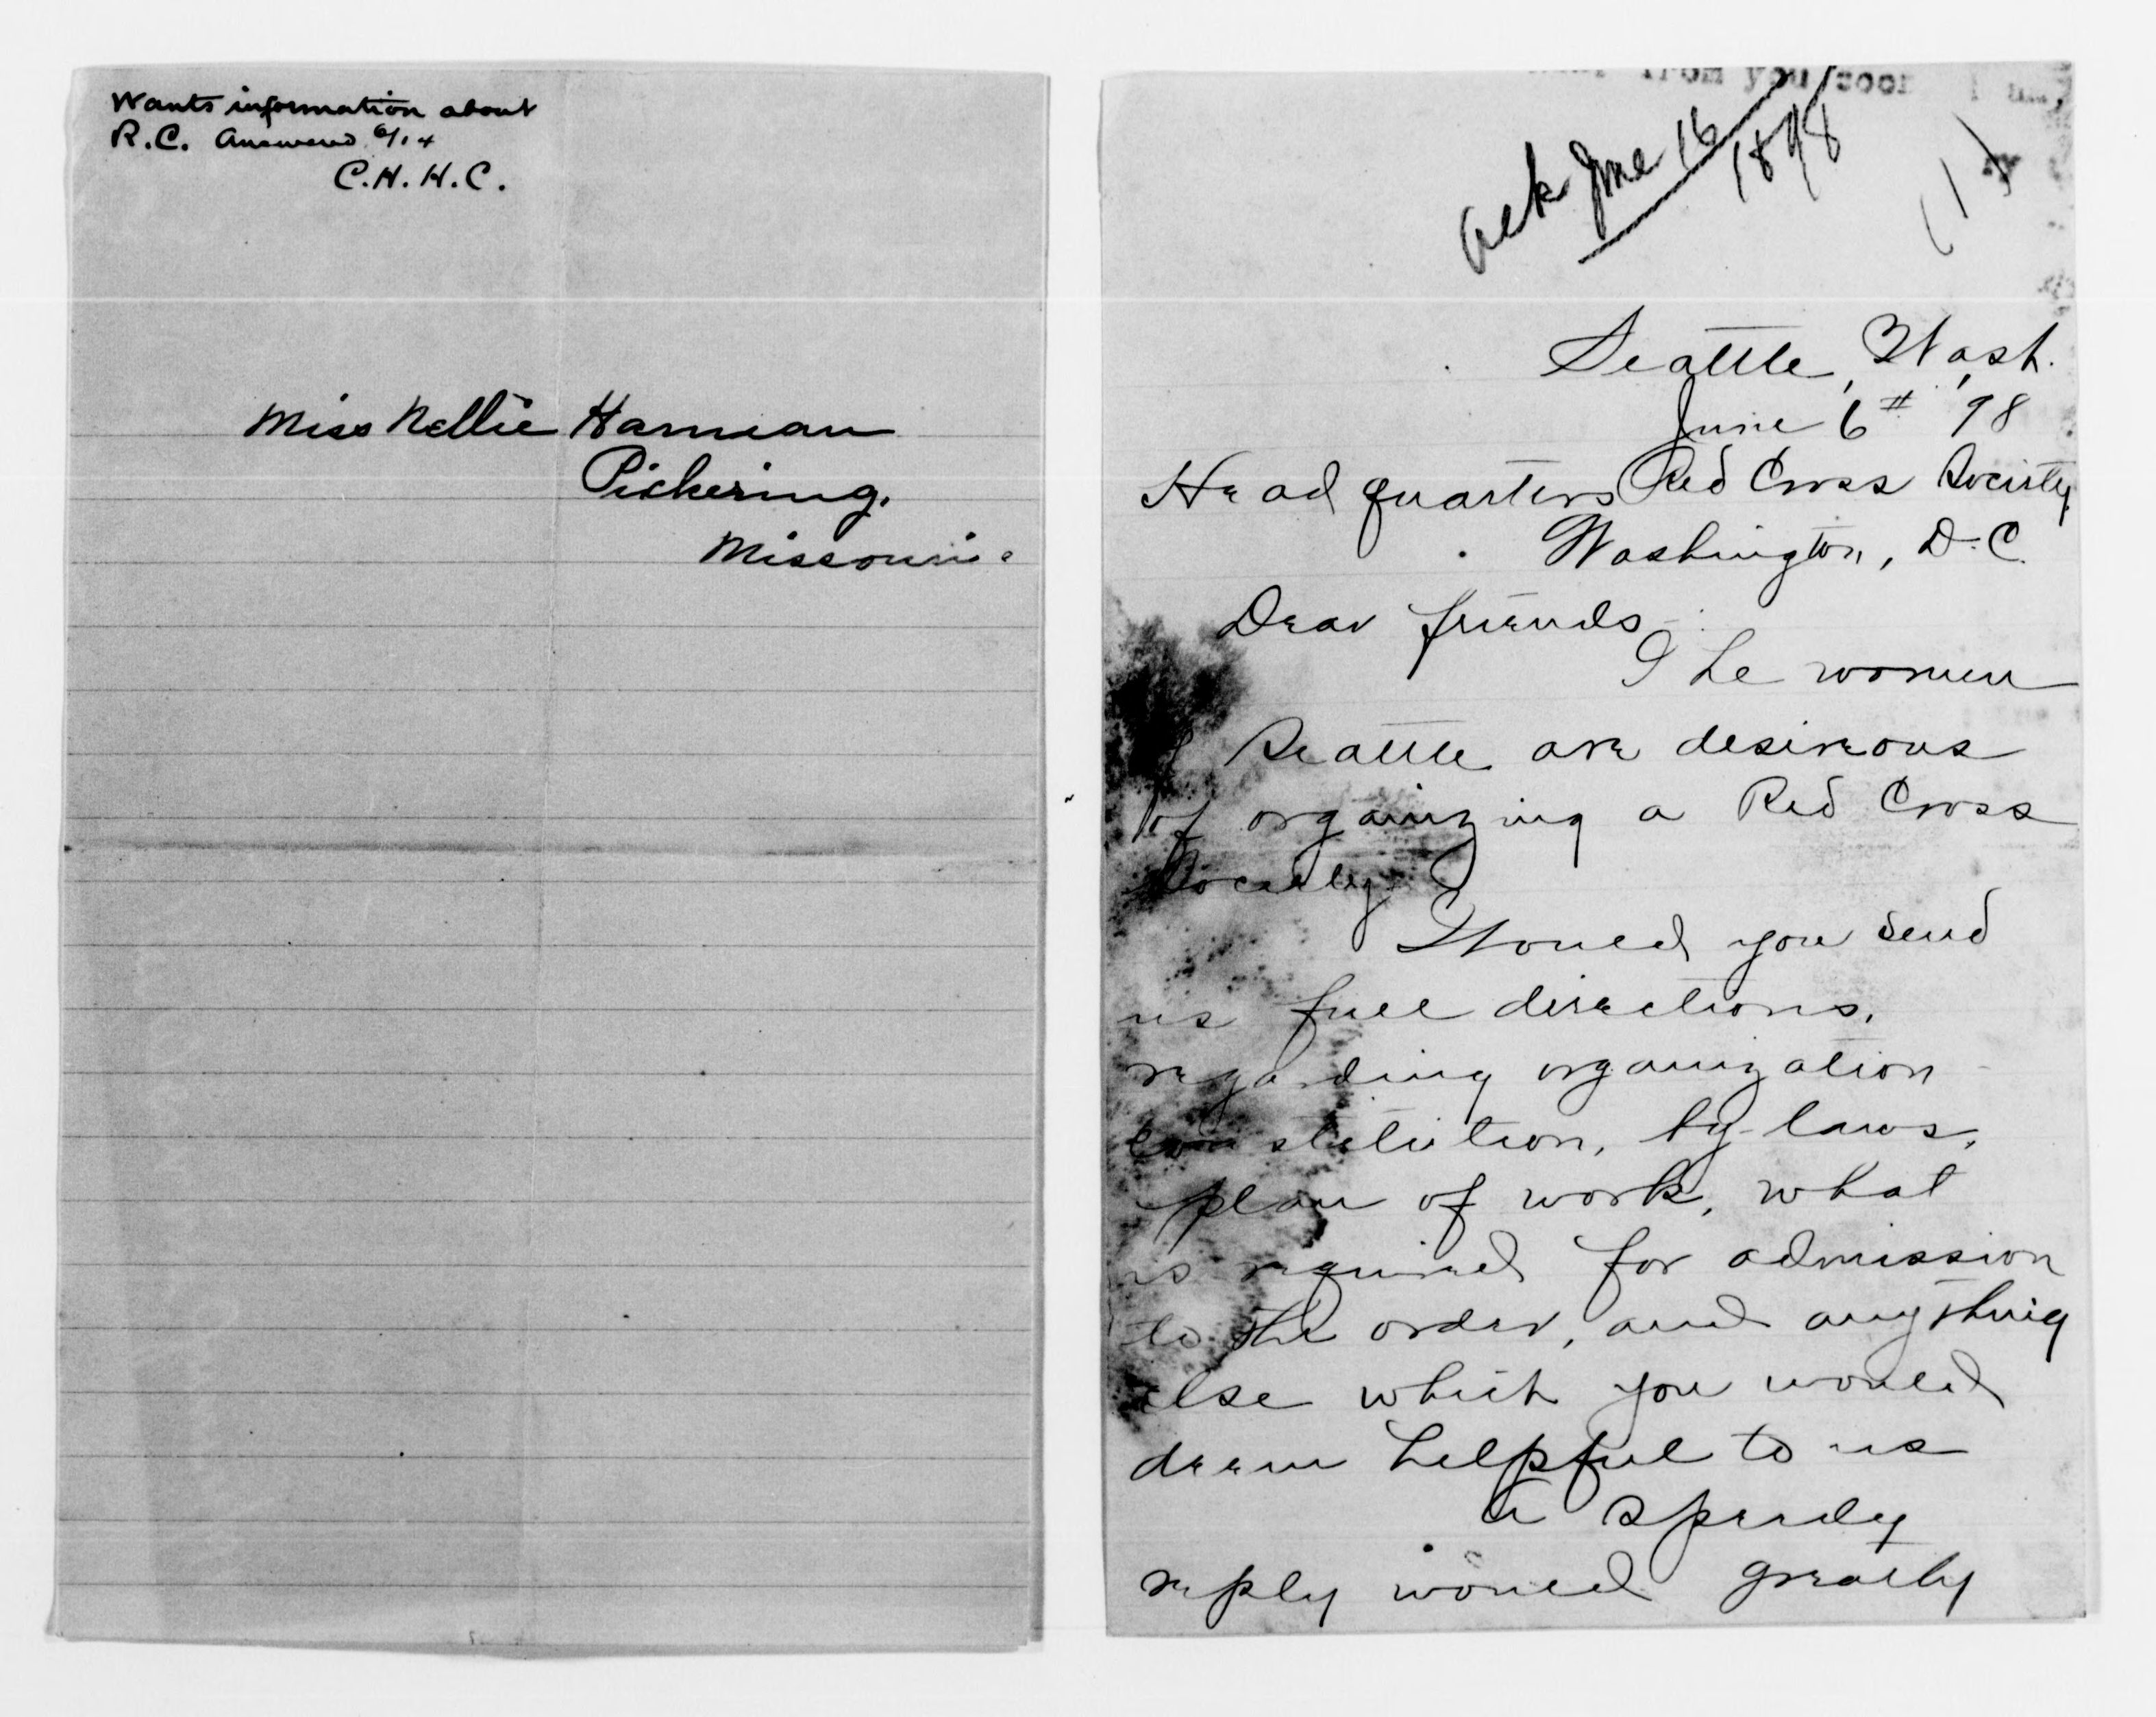 Wants information about
R.C. Answered 6/14
C.H.H.C.
Miss Nellie Harman
Pickering,
Missouri.
from you soon
Ack June 16
1898
Seattle, Wash.
June 6th '98
Head quarters Red Cross Society,
Washington, D.C.
Dear friends
The women
Seattle are desirous
of organizing a Red Cross
Society
Would you send
us full directions,
regarding organization
constitution, by-laws,
plan of work, what
is required for admission
to the order, and anything
else which you would
deem helpful to us
A speedy
reply would greatly